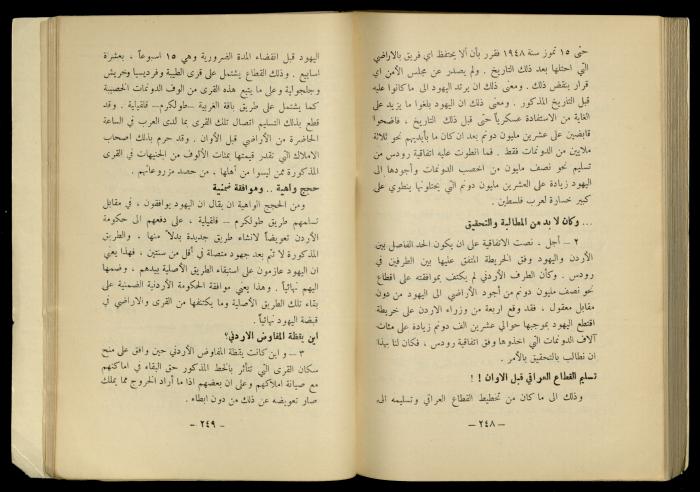 حتى ١٥ تموز سنة ١٩٤٨ فقرر بأن ألا يحتفظ اي فريق بالاراضي
التي احتلها بعد ذلك التاريخ . ولم يصدر عن مجلس الأمن اي
قرار ينقض ذلك . ومعنى ذلك ان يرتد اليهود الى ما كانوا عليه
قبل التاريخ المذكور . ومعنى ذلك ان اليهود بلغوا ما يزيد على
الغاية من الاستفادة عسكرياً حتى قبل ذلك التاريخ ، فاضحوا
قابضين على عشرين مليون دونم بعد ان كان ما بأيديهم نحو ثلاثة
ملايين من الدونمات فقط . فما انطوت عليه اتفاقية رودس من
تسليم نحو نصف مليون من اخصب الدونمات وأجودها الى
اليهود زيادة على العشرين مليون دونم التي يحتلونها ينطوي على
كبير خسارة لعرب فلسطين .
... وكان لا بد من المطالبة والتحقيق
٢ – أجل ، نصت الاتفاقية على ان يكون الحد الفاصل بين
الأردن واليهود وفق الخريطة المتفق عليها بين الطرفين في
رودس . وكأن الطرف الأردني لم يكتف بموافقته على اقطاع
نحو نصف مليون دونم من أجود الأراضي الى اليهود من دون
مقابل معقول ، فقد وقع اربعة من وزراء الاردن على خريطة
اقتطع اليهود بموجبها حوالي عشرين الف دونم زيادة على مئات
آلاف الدونمات التي اخذوها وفق اتفاقية رودس ، فكان لنا بهذا
ان نطالب بالتحقيق بالأمر .
تسليم القطاع العراقي قبل الاوان ! !
وذلك الى ما كان من تخطيط القطاع العراقي وتسليمه الى
– ٢٤٨ –
اليهود قبل انقضاء المدة الضرورية وهي ١٥ اسبوعاً ، بعشرة
اسابيع . وذلك القطاع يشتمل على قرى الطيبة وفرديسيا وخريش
وجلجولية وعلى ما يتبع هذه القرى من الوف الدونمات الخصيبة
كما يشتمل على طريق باقة الغربية – طولكرم – قلقيلية . وقد
قطع بذلك التسليم اتصال تلك القرى بما لدى العرب في الساعة
الحاضرة من الأراضي قبل الأوان . وقد حرم بذلك اصحاب
الاملاك التي تقدر قيمتها بمئات الألوف من الجنيهات في القرى
المذكورة ممن ليسوا من أهلها ، من حصد مزروعاتهم .
حجج واهية .. وموافقة ضمنية
ومن الحجج الواهية ان يقال ان اليهود يوافقون ، في مقابل
تسلمهم طريق طولكرم – قلقيلية ، على دفعهم الى حكومة
الأردن تعويضاً لانشاء طريق جديدة بدلاً منها . والطريق
المذكورة لا تتم بعد جهود متصلة في أقل من سنتين ، فهذا يعني
ان اليهود عازمون على استبقاء الطريق الأصلية بيدهم ، وضمها
اليهم نهائياً . وهذا يعني موافقة الحكومة الأردنية الضمنية على
بقاء تلك الطريق الأصلية وما يكتنفها من القرى والاراضي في
قبضة اليهود نهائياً .
اين يقظة المفاوض الاردني؟
٣ – و اين كانت يقظة المفاوض الأردني حين وافق على منح
سكان القرى التي تتأثر بالخط المذكور حق البقاء في اماكنهم
مع صيانة املاكهم وعلى ان بعضهم اذا ما أراد الخروج مما يملك
صار تعويضه عن ذلك من دون ابطاء .
– ٢٤٩ –